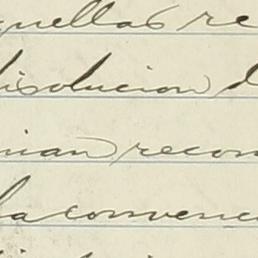 quellas re
disolucion d
nian recon
la convenc